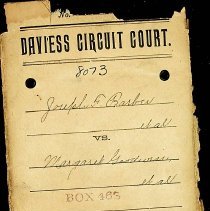 No.
DAVIESS CIRCUIT COURT.
8073
Joseph F. Barbour
et al
VS.
Margaret
et all
BOX 465